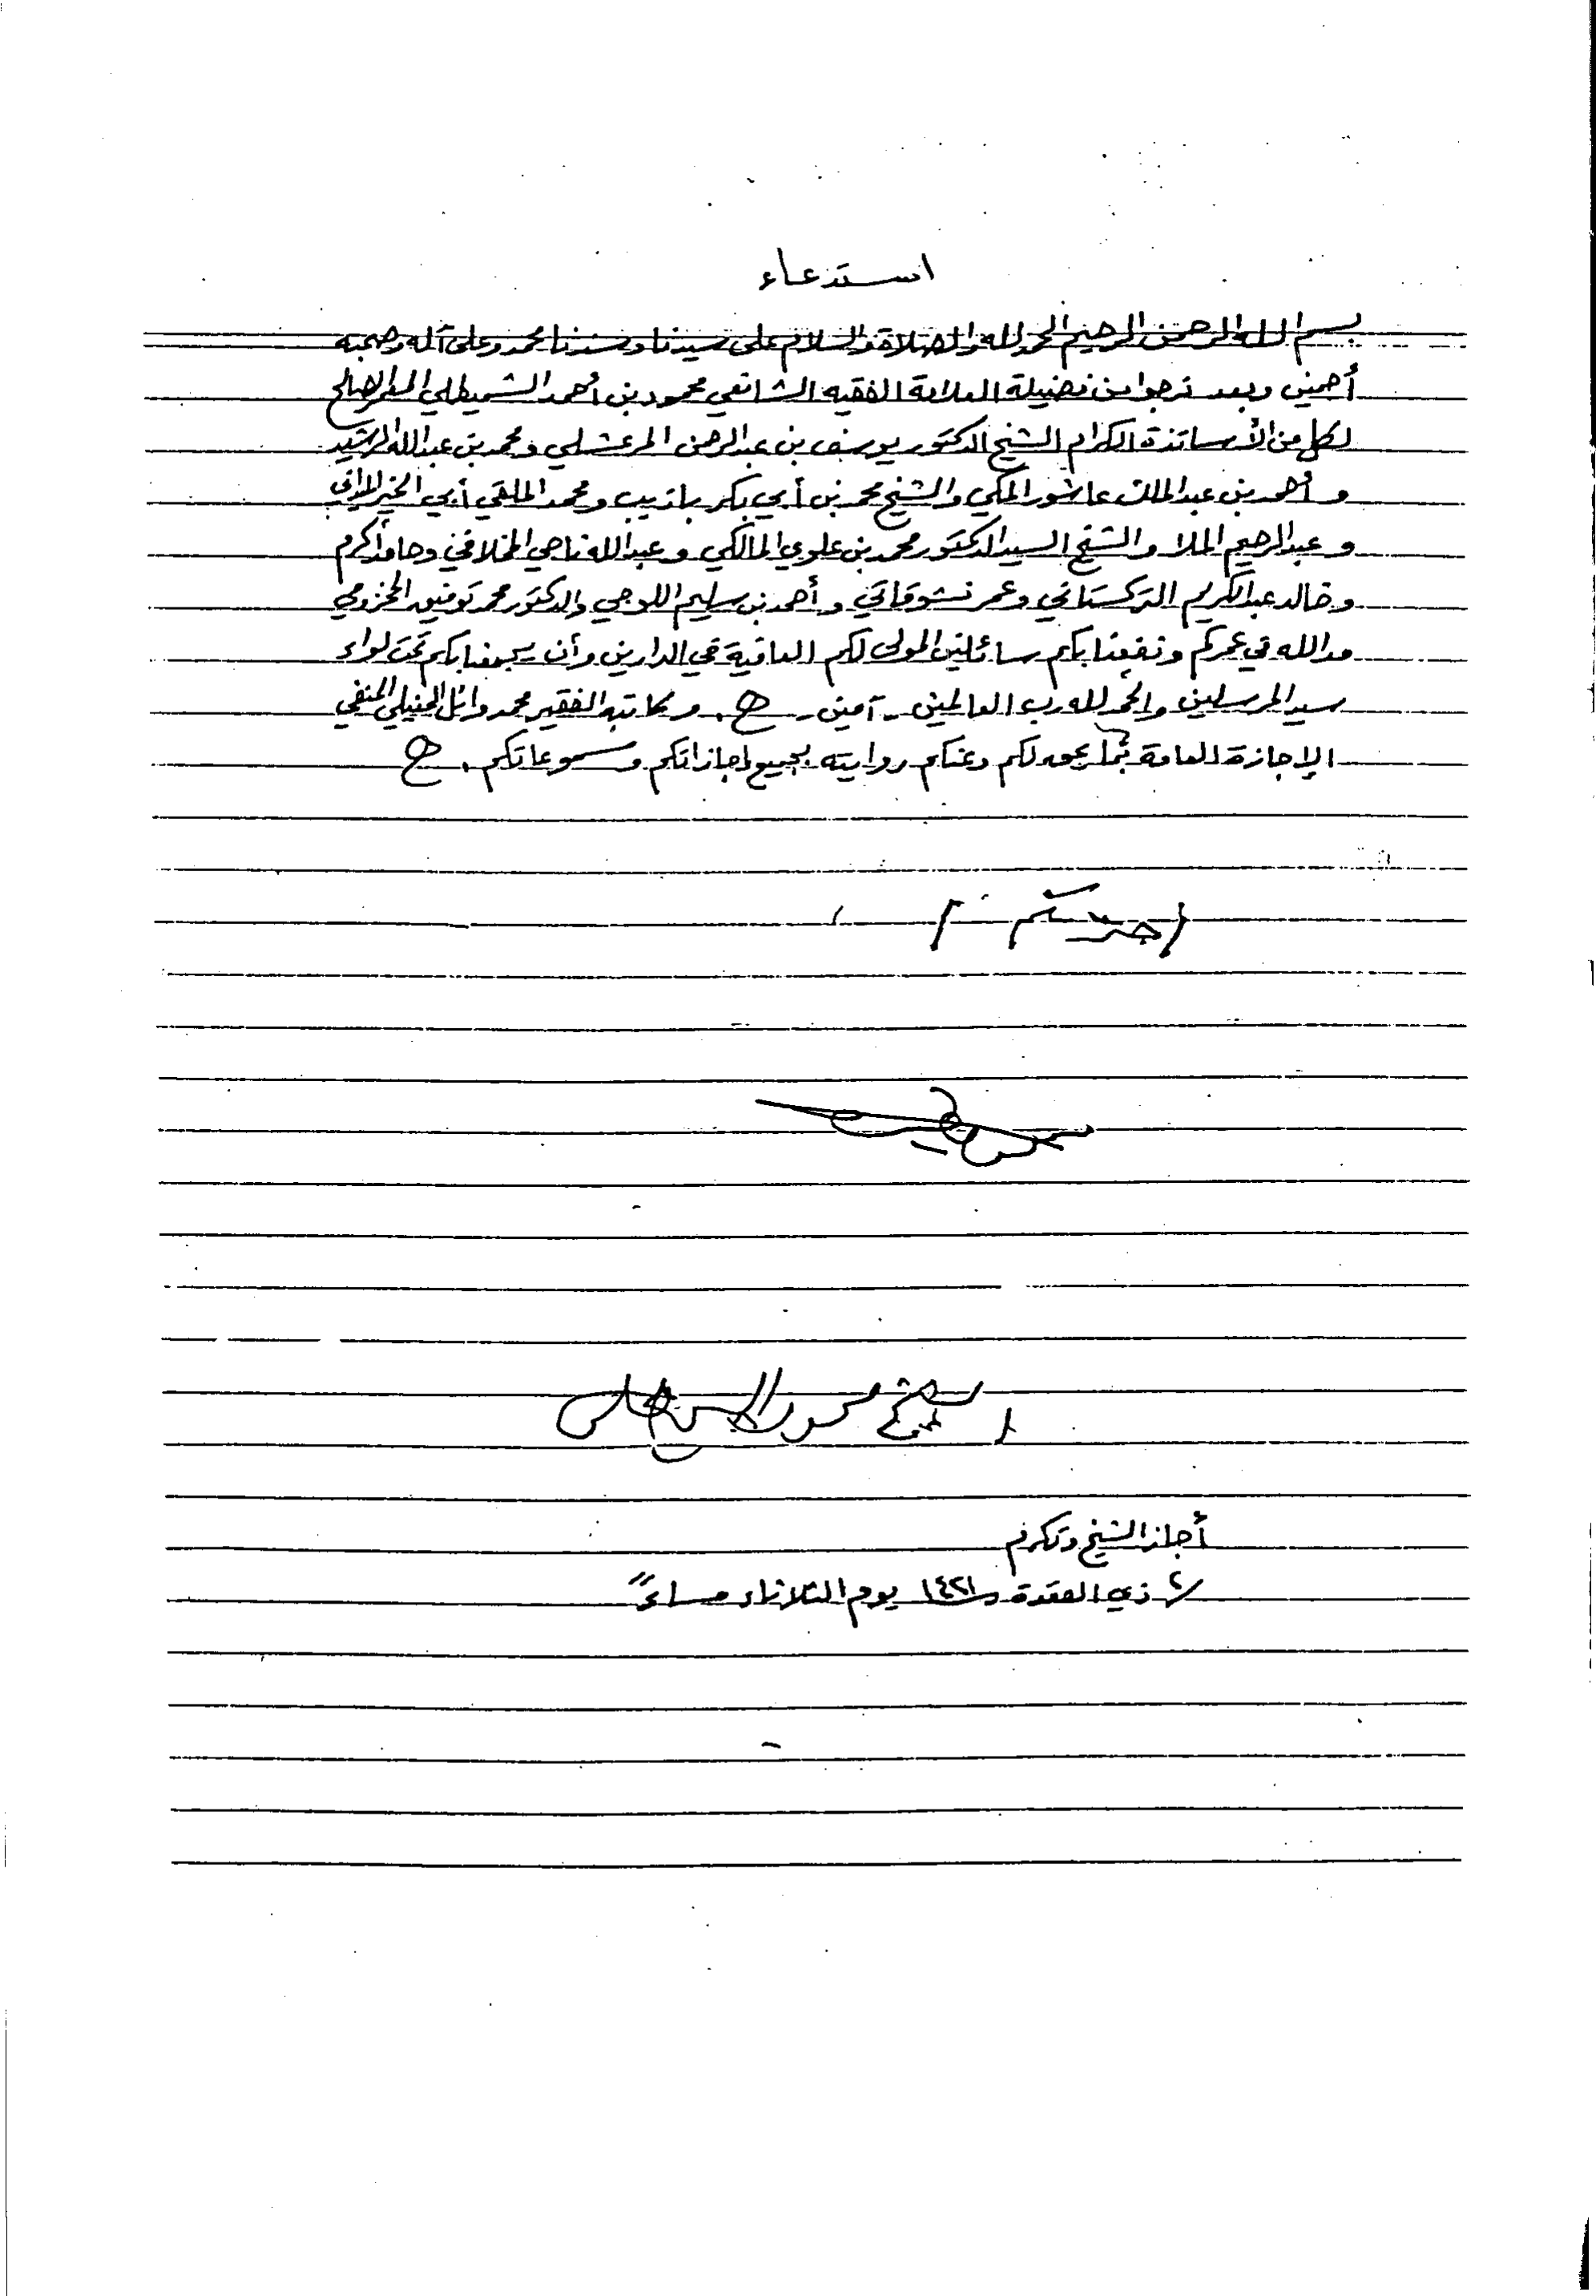 استدعاء
بسم الله الرحمن الرحيم الحمد لله والصلاة والسلام على سيدنا وسندنا محمد وعلى آله وصحبه
أجمعين وبعد نرجو من فضيلة العلامة الفقيه الشافعي محمود بن أحمد الشميطلي
لكل من الأساتذة الكرام الشيخ الدكتور يوسف بن عبدالرحمن المرعشلي ومحمد بن عبدالله الرشيد
وأحمد بن عبدالملك عاشور المكي والشيخ محمد بن أبي بكر باذيب ومحمد الملقي أبي الخير
وعبدالرحيم الملا والشيخ السيد الدكتور محمد بن علوي المالكي وعبدالله ناجي المخلافي وحامد أكرم
وخالد عبدالكريم التركستاني وعمر نشوقاتي وأحمد بن سليم اللوجي والدكتور محمد توفيق المخزومي
مد الله في عمركم ونفعنا بكم سائلين المولى لكم العافية في الدارين وأن يجمعنا بكم تحت لواء
سيد المرسلين والحمد لله رب العالمين - آمين - وكاتبه الفقير محمد وائل الحنبلي الحنفي
الإجازة العامة بما يصح لكم وعنكم روايته بجميع إجازاتكم ومسموعاتكم .
أجزتكم
الشيخ محمود
أجاز الشيخ وتكرم
٢/ ذي القعدة ١٤٢١ يوم الثلاثاء مساءً